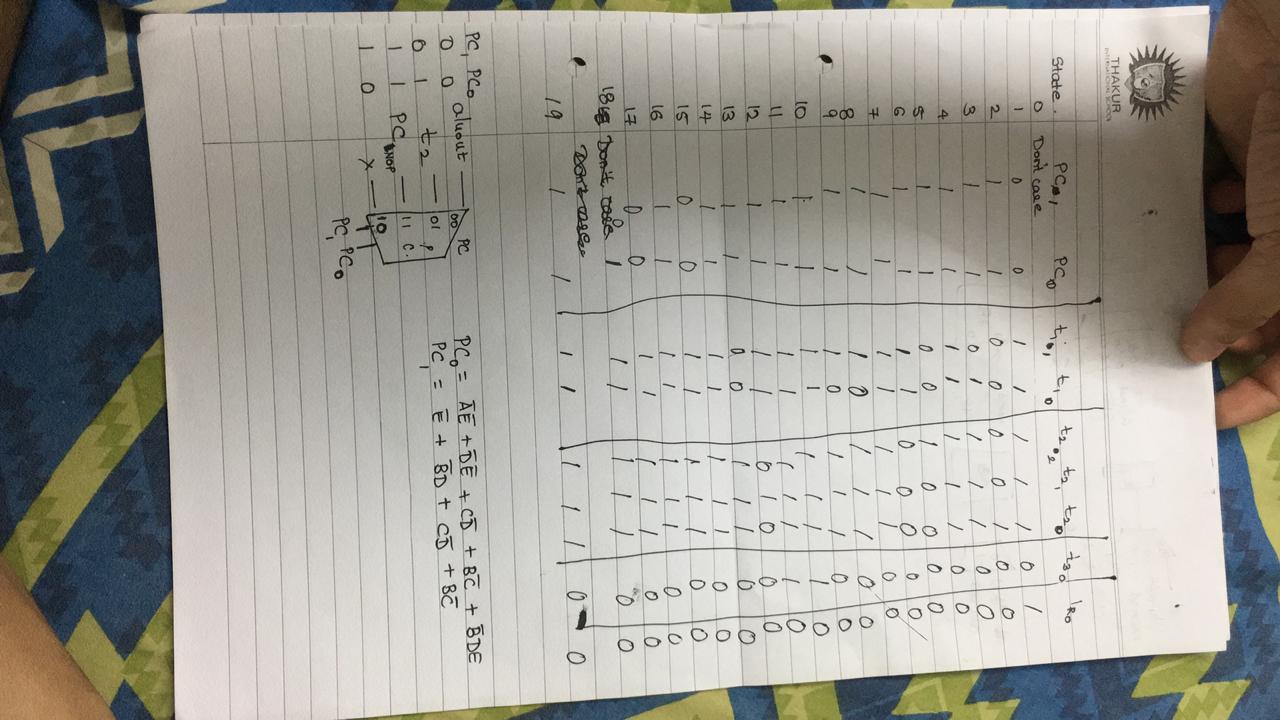 THAKUR
INTERNATIONAL SCHOOL
State. PC1 PC0 t1 1 t1 0 t2 2 t2 1 t2 0 t3 0 IR0
0 Don't care
1 0 0 1 1 1 1 1 0 1
2 1 1 0 0 0 0 1 0 0
3 1 1 0 1 1 1 1 0 0
4 1 1 1 1 1 1 1 0 0
5 1 1 0 0 1 0 0 0 0
6 1 1 1 1 0 0 0 0 0
7 1 1 1 1 1 1 1 0 0
8 1 1 1 0 1 1 1 0 0
9 1 1 1 0 1 1 1 0 0
10 1 1 1 1 1 1 1 1 0
11 1 1 1 1 1 1 1 1 0
12 1 1 1 1 0 1 0 0 0
13 1 1 0 0 1 1 1 0 0
14 1 1 1 1 1 1 1 0 0
15 0 0 1 1 1 1 1 0 0
16 1 1 1 1 1 1 1 0 0
17 0 0 1 1 1 1 1 0 0
18 Don't care 0 1 1 1 1 1 1 0 0
Don't care
19 1 1 1 1 1 1 1 0 0
PC1 PC0
0 0 aluout 00 PC
0 1 t2 01 P
1 1 PC NOP 11 C.
1 0 x 10
PC1 PC0
PC0 = A̅E̅ + D̅E̅ + CD̅ + BC̅ + B̅DE
PC1 = E̅ + B̅D + CD̅ + BC̅